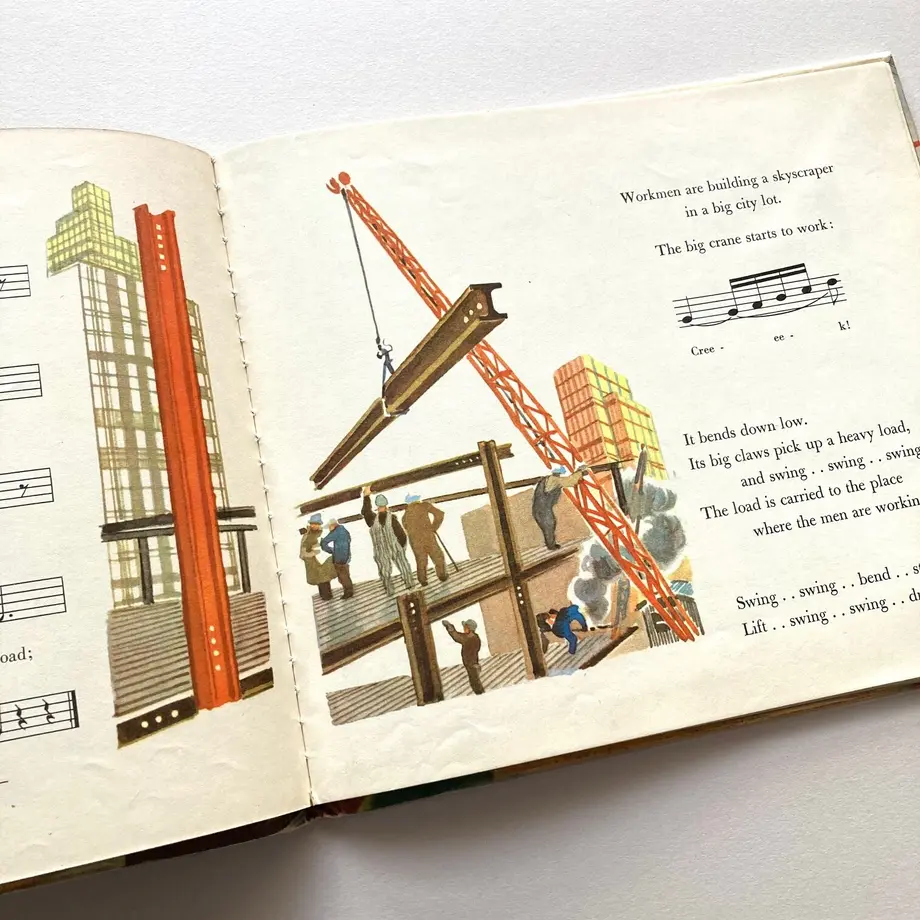 oad;
Workmen are building a skyscraper
in a big city lot.
The big crane starts to work:
Cree - ee - k!
It bends down low.
Its big claws pick up a heavy load,
and swing . . swing . . swing
The load is carried to the place
where the men are workin
Swing . . swing . . bend . . s
Lift . . swing . . swing . . d